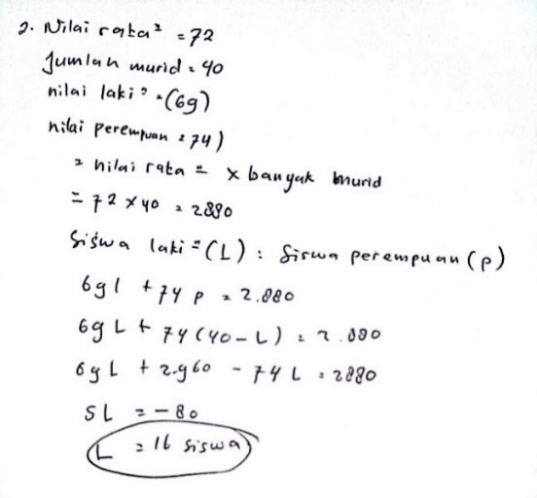 2. Nilai rata² = 72
Jumlah murid = 40
nilai laki² = (69)
nilai perempuan = 74)
= nilai rata = x banyak murid
= 72 x 40 = 2880
Siswa laki² (L) : Siswa perempuan (p)
69l + 74 p = 2.880
69 L + 74 (40 - L) = 2.880
69 L + 2.960 - 74 L = 2880
5L = -80
L = 16 siswa